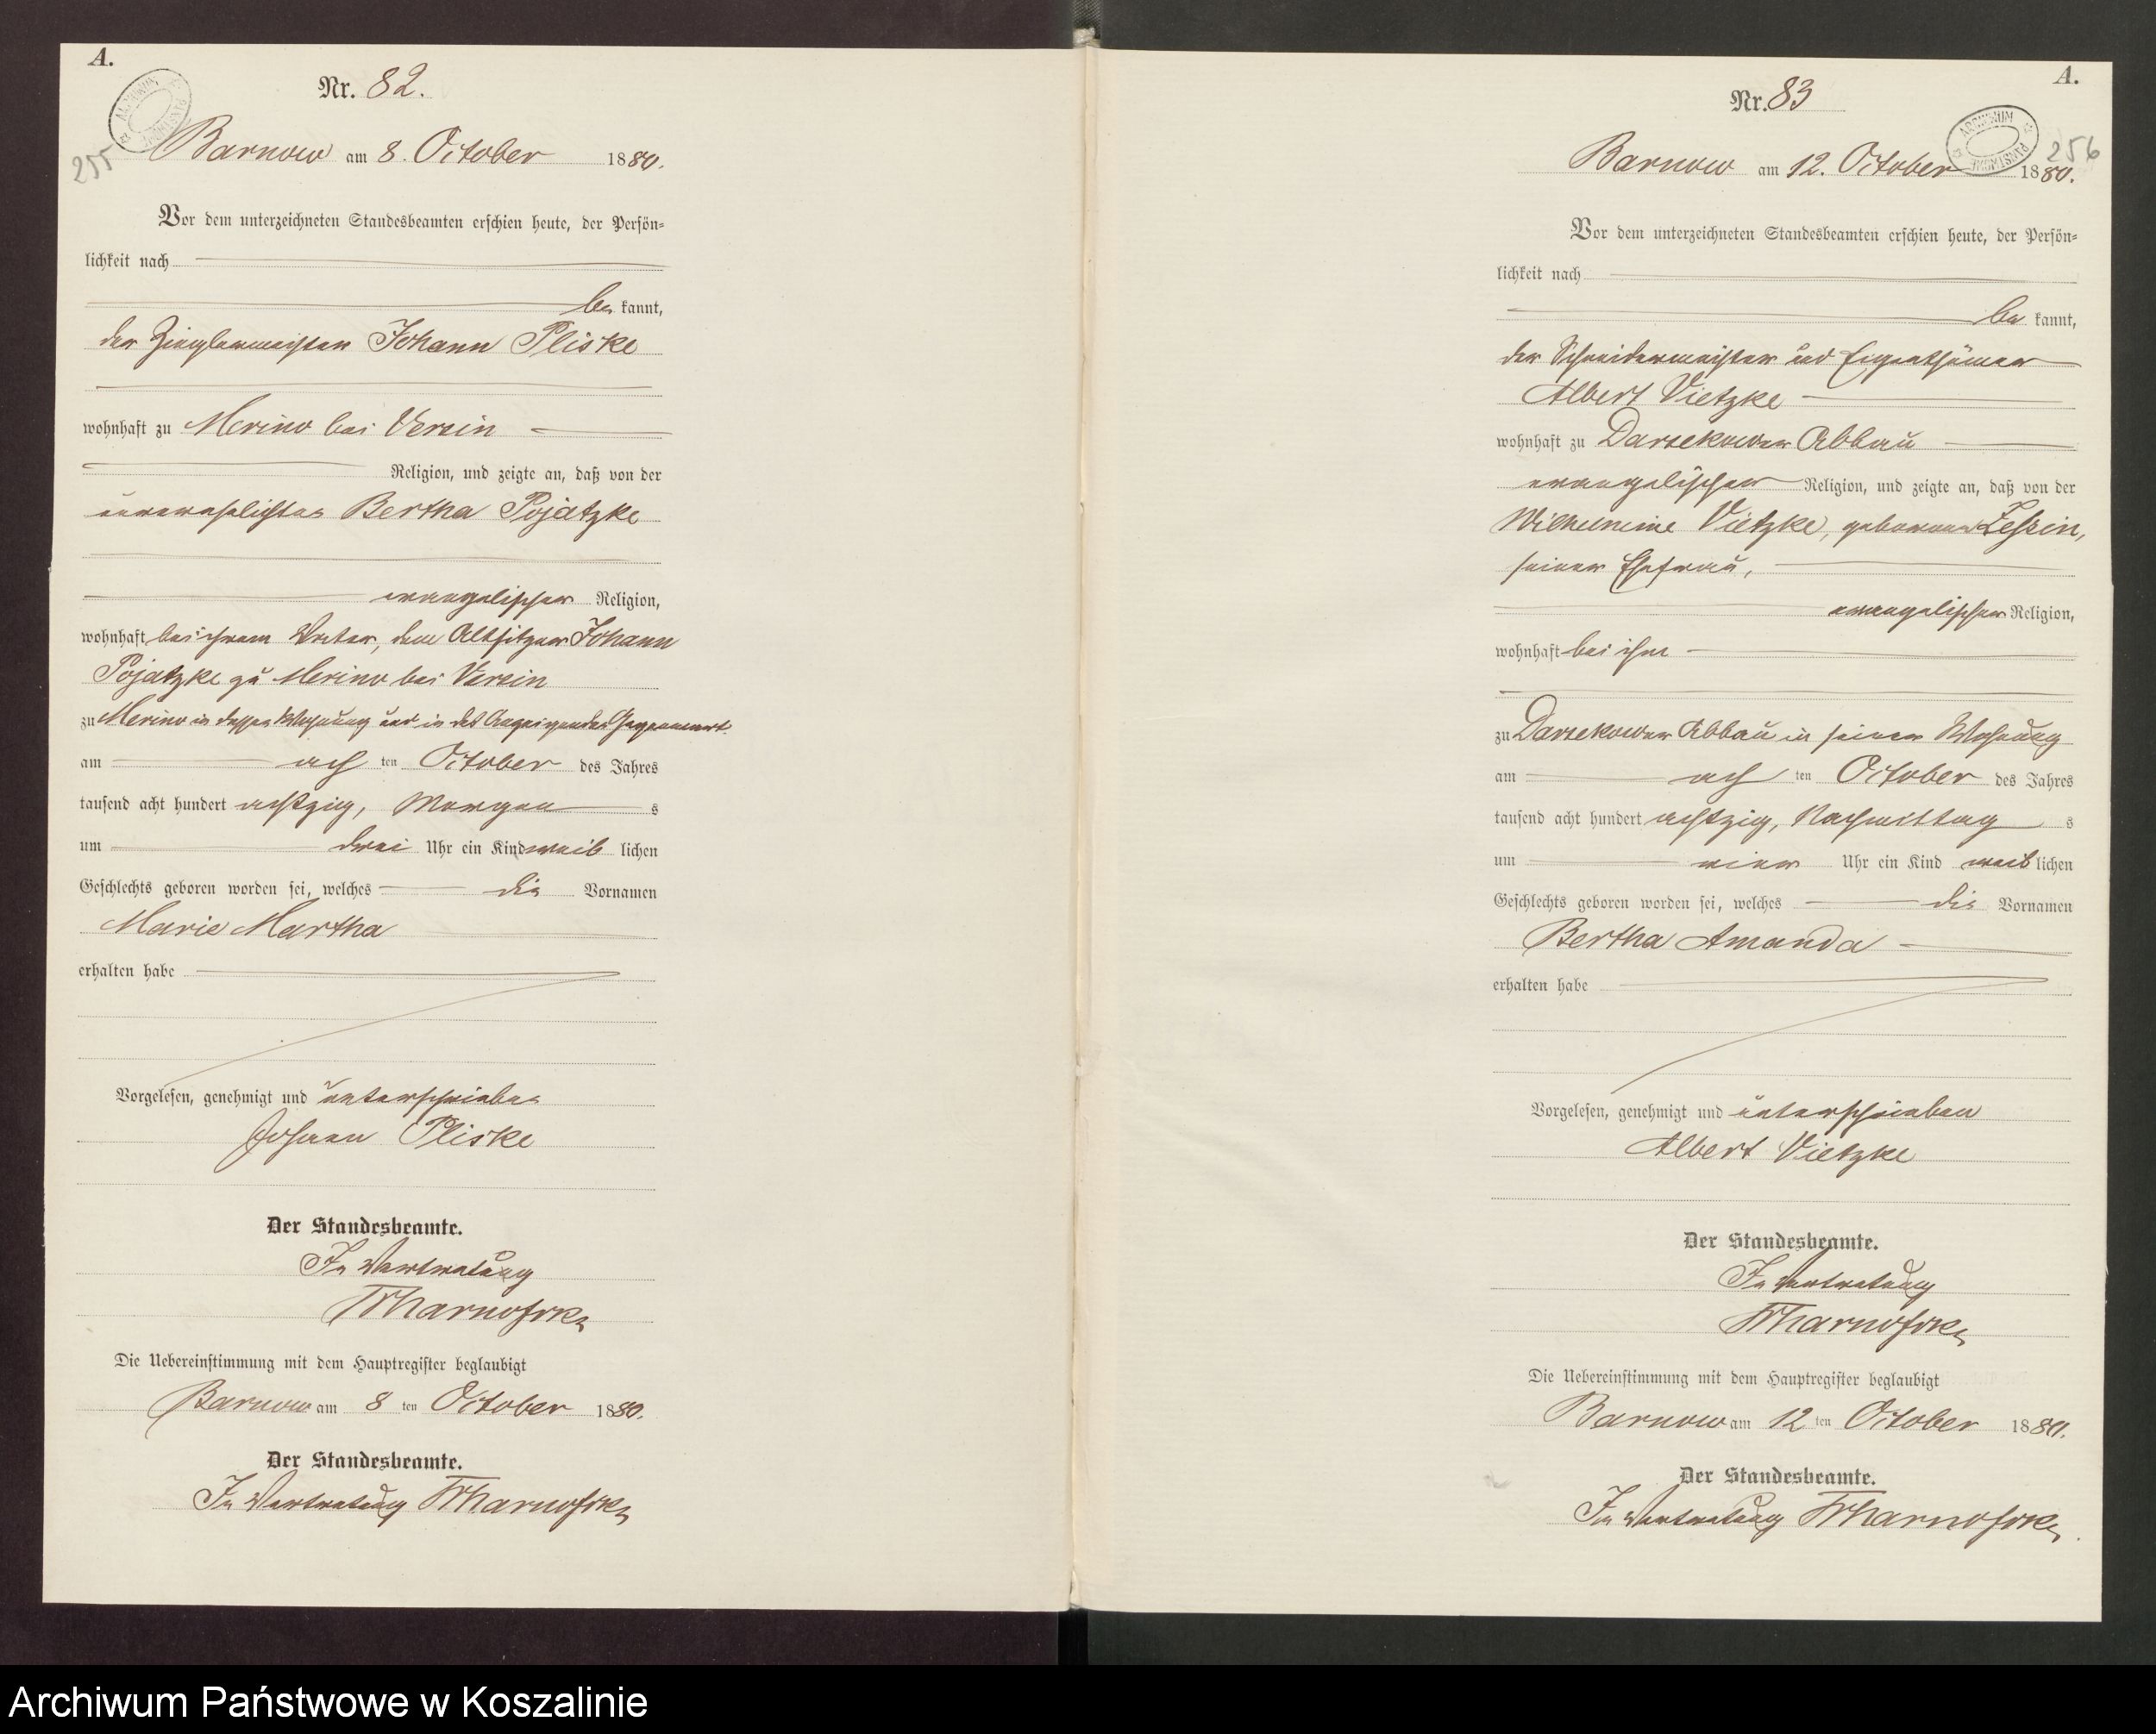 A.
Nr. 82.
255
Barnow am 8. October 1880.
Vor dem unterzeichneten Standesbeamten erschien heute, der Persön-
lichkeit nach
be kannt,
der Zieglermeister Johann Pliske
wohnhaft zu Merino bei Versin
Religion, und zeigte an, daß von der
unverehelichten Bertha Pojatzke
evangelischer Religion,
wohnhaft bei ihrem Vater, dem Altsitzer Johann
Pojatzke zu Merino bei Versin
zu Merino in dessen Wohnung und in des Anzeigenden Gegenwart
am ach ten October des Jahres
tausend acht hundert achtzig, Morgen s
um drei Uhr ein Kind weib lichen
Geschlechts geboren worden sei, welches die Vornamen
Marie Martha
erhalten habe
Vorgelesen, genehmigt und unterschrieben
Johann Pliske
Der Standesbeamte.
In Vertretung
Die Uebereinstimmung mit dem Hauptregister beglaubigt
Barnow am 8 ten October 1880.
Der Standesbeamte.
In Vertretung
A.
Nr. 83
ARCHIWUM PAŃSTWOWE
256
Barnow am 12. October 1880.
Vor dem unterzeichneten Standesbeamten erschien heute, der Persön-
lichkeit nach
be kannt,
der Schneidermeister und Eigenthümer
Albert Vietzke
wohnhaft zu Darsekower Abbau
evangelischer Religion, und zeigte an, daß von der
Wilhelmine Vietzke, geborenen Lessin,
seiner Ehefrau,
evangelischer Religion,
wohnhaft bei ihm
zu Darsekower Abbau in seiner Wohnung
am ach ten October des Jahres
tausend acht hundert achtzig, Nachmittag s
um vier Uhr ein Kind weib lichen
Geschlechts geboren worden sei, welches die Vornamen
Bertha Amanda
erhalten habe
Vorgelesen, genehmigt und unterschrieben
Albert Vietzke
Der Standesbeamte.
In Vertretung
Die Uebereinstimmung mit dem Hauptregister beglaubigt
Barnow am 12 ten October 1880.
Der Standesbeamte.
In Vertretung
Archiwum Państwowe w Koszalinie